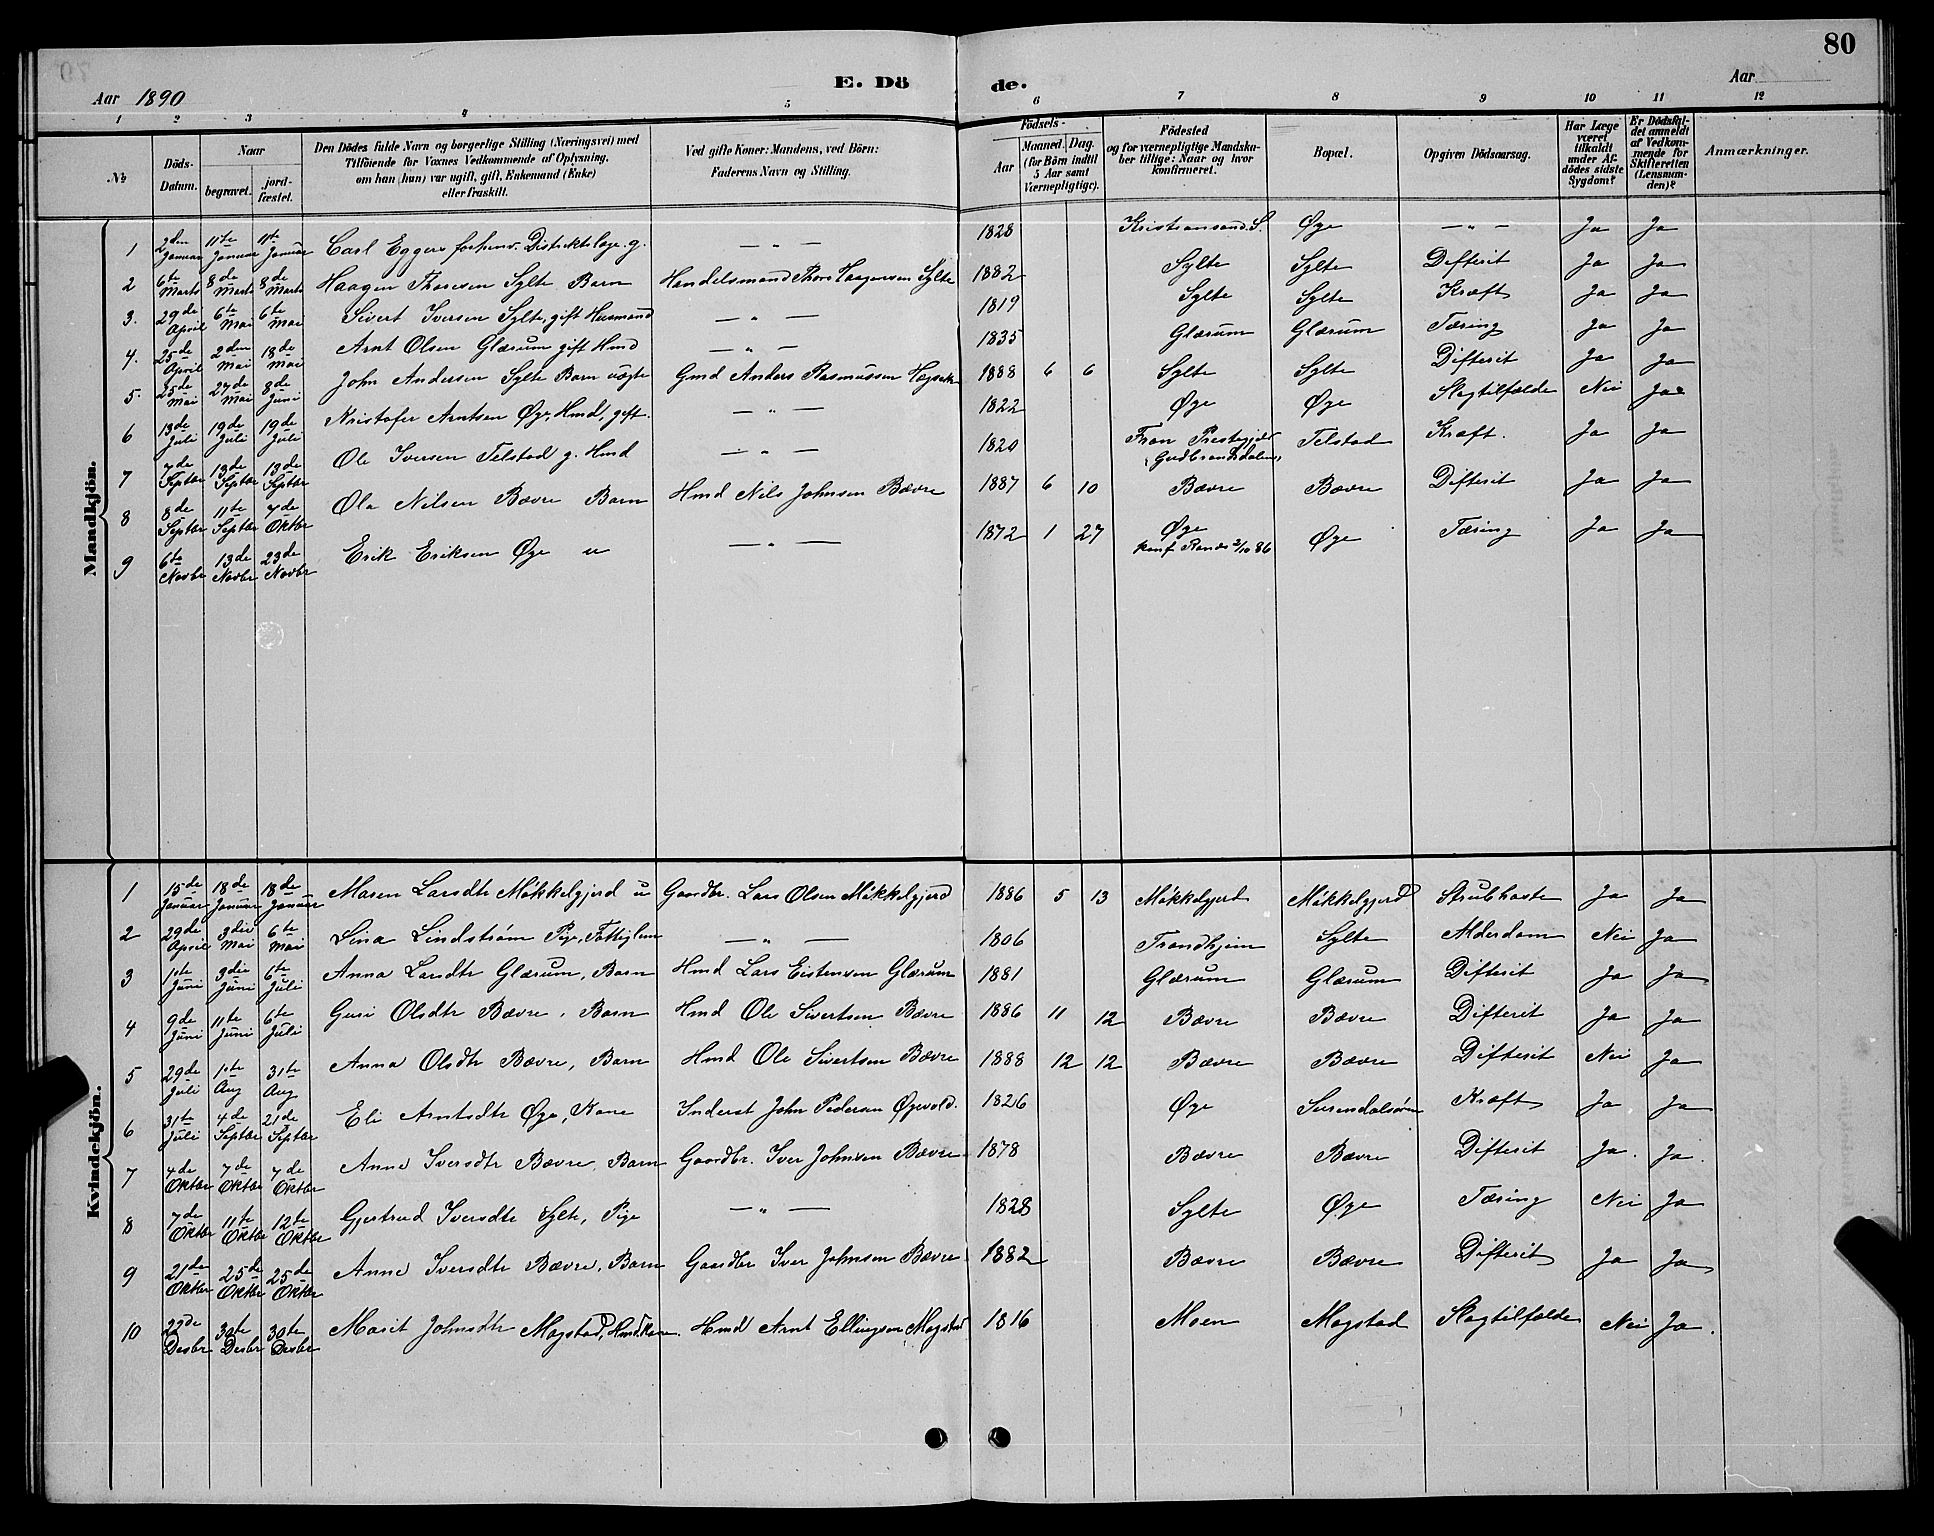 80
E. Dö de.
Aar 1890 Aar
1 2 3 4 5 6 7 8 9 10 11 12
№ Döds-Datum. Naar begravet. jord-fæstet. Den Dödes fulde Navn og borgerlige Stilling (Næringsvei) med Tilföiende for Voxnes Vedkommende af Oplysning, om han (hun) var ugift, gift, Enkemand (Enke) eller fraskilt. Ved gifte Koner: Mandens, ved Börn: Faderens Navn og Stilling. Födsels- Aar Maaned Dag. (for Börn indtil 5 Aar samt Værnepligtige). Födested og for værnepligtige Mandskaber tillige: Naar og hvor konfirmeret. Bopæl. Opgiven Dödsaarsag. Har Læge været tilkaldt under Afdödes sidste Sygdom? Er Dödsfaldet anmeldt af Vedkommende for Skifteretten (Lensmanden)? Anmærkninger.
Mandkjön.
1 2den Januar 11te Januar 11te Januar Carl Eggers forhenv. Distriktslæge. g. — „ — 1828 Kristiansand. S. Øye — „ — Ja Ja
2 6te Marts 8de Marts 8de Marts Haagen Thoresen Sylte Barn Handelsmand Thore Haagensen Sylte 1882 Sylte Sylte Difterit Ja Ja
3. 29de April 6te Mai 6te Mai Sivert Iversen Sylte, gift Husmand — „ — 1819 Sylte Sylte Kræft Ja Ja
4. 25de April 2den Mai 18de Mai Arnt Olsen Glærum gift Hmd — „ — 1835 Glærum Glærum Tæring Ja Ja
5. 25de Mai 27de Mai 8de Juni John Andersen Sylte Barn uægte Gmd Anders Rasmussen 1888 6 6 Sylte Sylte Difterit Ja Ja
6 13de Juli 19de Juli 19de Juli Kristofer Arntsen Øye, Hmd, gift. — „ — 1822 Øye Øye Slagtilfælde Nei Ja
7 7de Septbr 13de Septbr 13de Septbr Ole Iversen Telstad g. Hmd — „ — 1820 Fron Prestegjeld Gudbrandsdalen, Telstad Kræft. Ja Ja
8 8de Septbr 11te Septbr 4de Oktbr Ola Nilsen Bævre Barn Hmd Nils Johnsen Bævre 1887 6 10 Bævre Bævre Difterit Ja Ja
9 6te Novbr 13de Novbr 23de Novbr Erik Eriksen Øye u — „ — 1872 1 27 Øye konf. Ranes 3/10 86 Øye Tæring Ja Ja
Kvindekjön.
1 15de Januar 18de Januar 18de Januar Maren Larsdtr Møkkelgjerd u Gaardbr. Lars Olsen Møkkelgjerd 1886 5 13 Møkkelgjerd Møkkelgjerd Strubhoste Ja Ja
2 29de April 3die Mai 6te Mai Lina Lindstrøm Pige, Fattiglem — „ — 1806 Trondhjem Sylte Alderdom Nei Ja
3 1ste Juni 3die Juni 6te Juli Anna Larsdtr Glærum, Barn Hmd Lars Eistensen Glærum 1881 Glærum Glærum Difterit Ja Ja
4 9de Juni 11te Juni 6te Juli Guri Olsdtr Bævre, Barn Hmd Ole Sivertsen Bævre 1886 11 12 Bævre Bævre Difterit Ja Ja
5 29de Juli 1ste Aug 31te Aug Anna Olsdtr Bævre, Barn Hmd Ole Sivertsen Bævre 1888 12 12 Bævre Bævre Difterit Nei Ja
6 31te Juli 4de Septbr 21de Septbr Eli Arntsdtr Øye, Kone Inderst John Pedersen Øyevold. 1826 Øye Surendalsøren Kræft Ja Ja
7 4de Oktbr 7de Oktbr 7de Oktbr Anne Iversdtr Bævre, Barn Gaardbr. Iver Johnsen Bævre 1878 Bævre Bævre Difterit Ja. Ja.
8 7de Oktbr 11te Oktbr 12te Oktbr Gjertrud Iversdtr Sylte, Pige — „ — 1828 Sylte Øye Tæring Nei Ja
9 21de Oktbr 25de Oktbr 25de Oktbr Anne Iversdtr Bævre, Barn Gaardbr Iver Johnsen Bævre 1882 Bævre Bævre Difterit Ja Ja
10 22de Desbr 30te Desbr 30te Desbr Marit Johnsdtr Mogstad, Hmdkone. Hmd Arnt Ellingsen Mogstad 1816 Moen Mogstad Slagtilfælde Nei Ja.